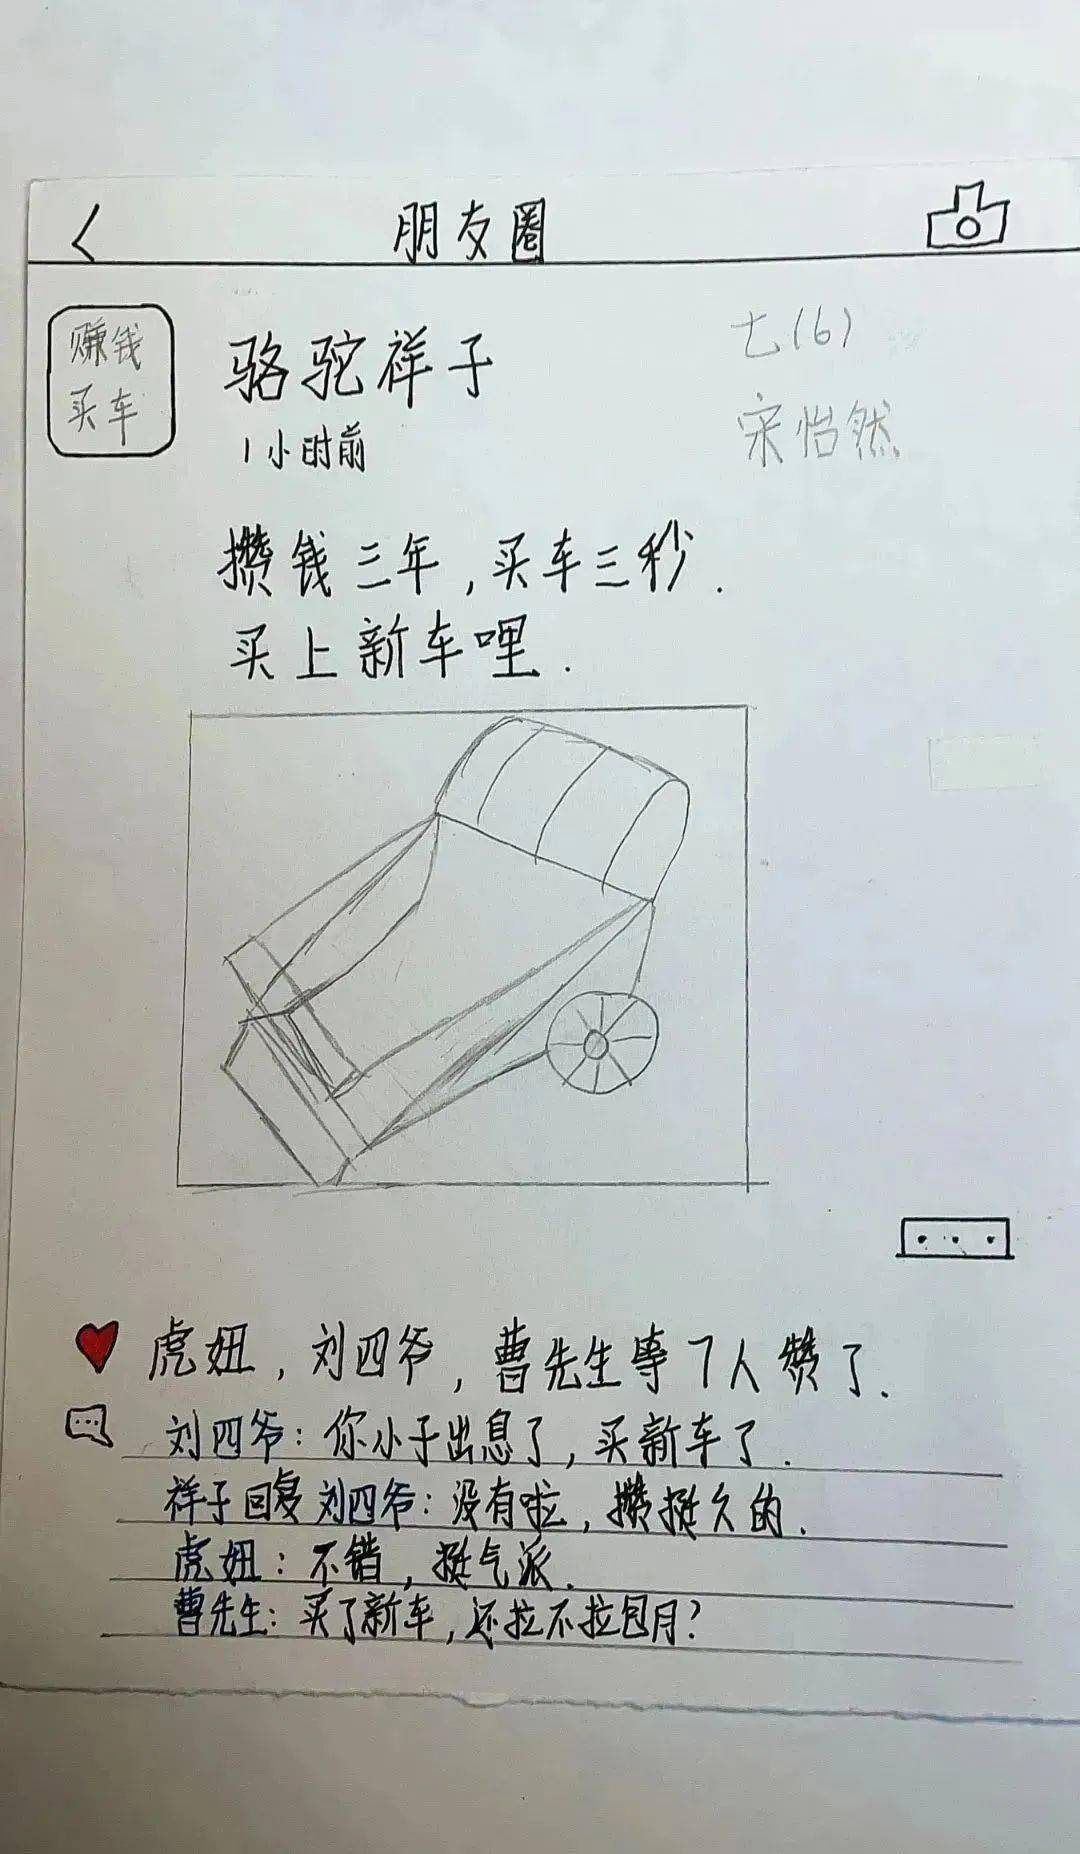 朋友圈
赚钱
买车
骆驼祥子
1小时前
七(6)
宋怡然
攒钱三年,买车三秒.
买上新车哩.
虎妞,刘四爷,曹先生等7人赞了.
刘四爷:你小子出息了,买新车了.
祥子回复刘四爷:没有啦,攒挺久的.
虎妞:不错,挺气派.
曹先生:买了新车,还拉不拉包月?